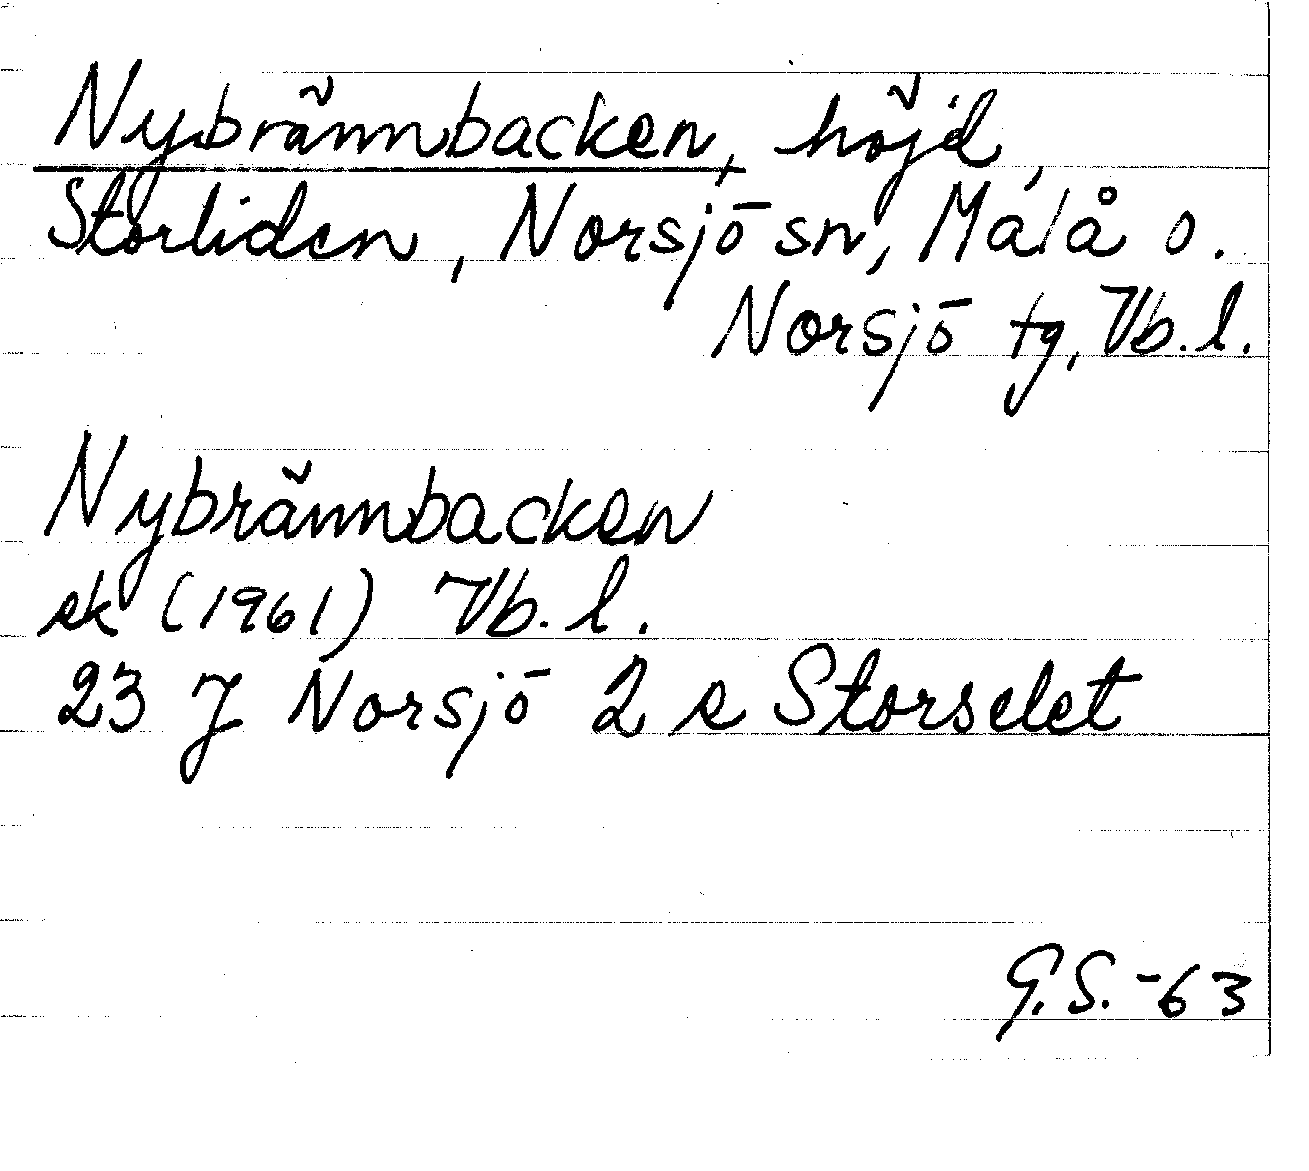 Nybrännbacken, höjd,
Storliden, Norsjö sn, Malå o.
Norsjö tg, Vb. l.
Nybrännbacken
ek (1961) Vb. l.
23 J Norsjö 2 e Storselet
G.S. -63